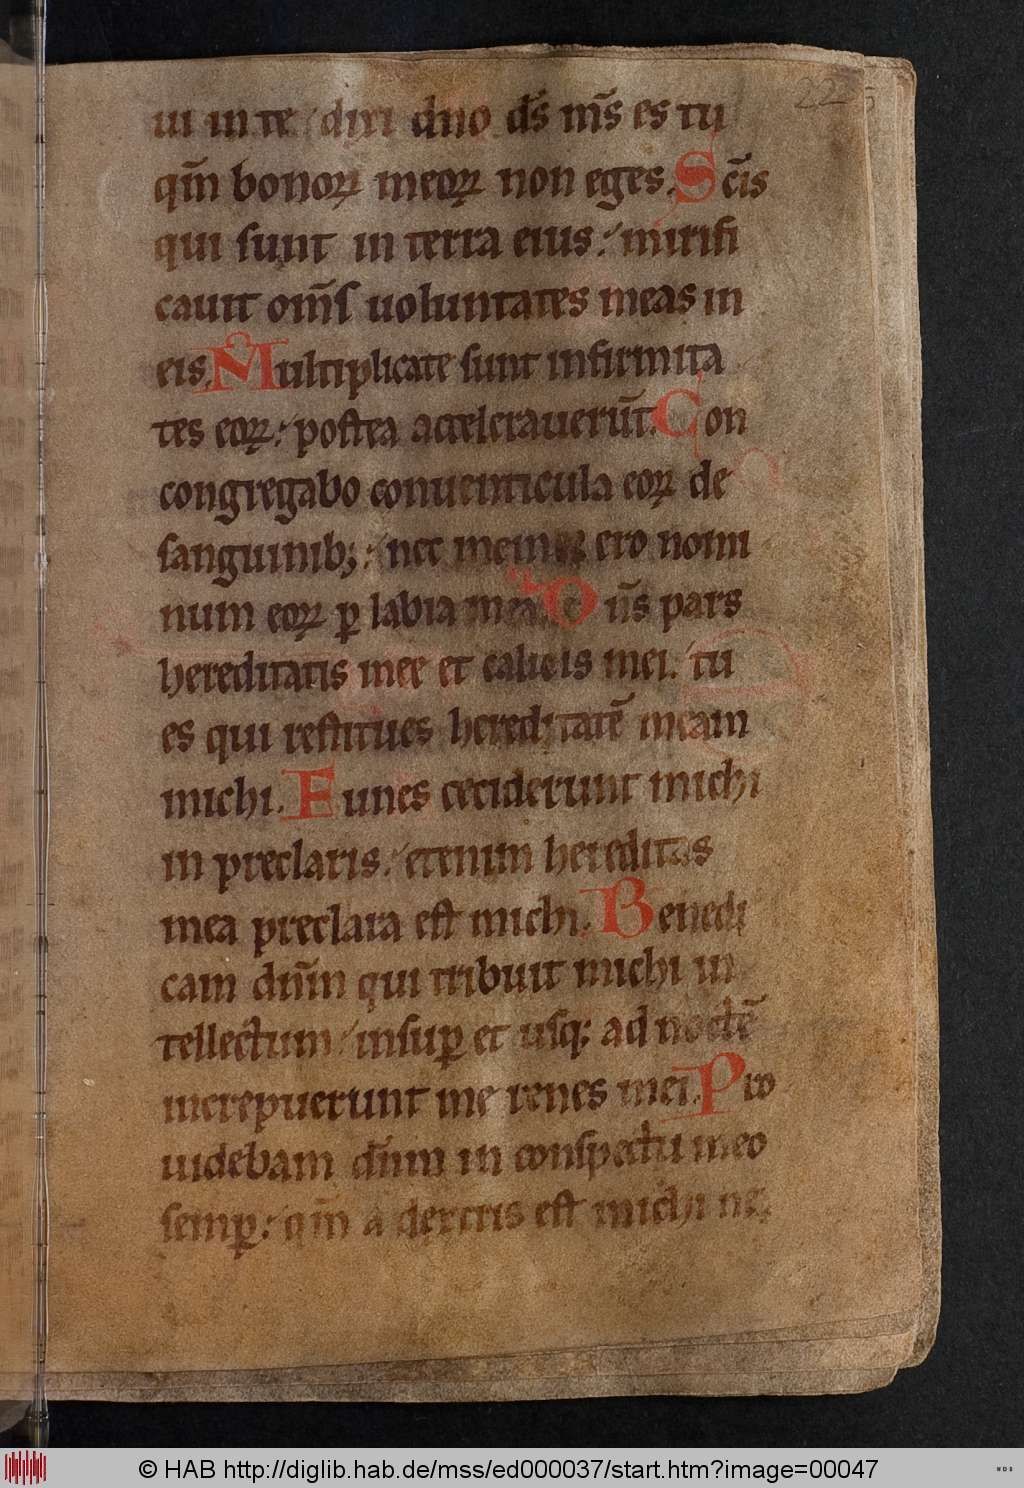 22
ui in te / dixi dño d̄s m̄s es tu
qm̄ bonoꝝ meoꝝ non eges. Sc̄is
qui sunt in terra eius: / mirifi
cauit om̄s uoluntates meas in
eis. Multiplicate sunt infirmita
tes eoꝝ: / postea accelerauerūt. Con
congregabo conuenticula eoꝝ de
sanguinibꝫ: / nec memor ero nomi
num eoꝝ ꝑ labia mea. Dn̄s pars
hereditatis mee et calicis mei. / tu
es qui restitues hereditatē meam
michi. Funes ceciderunt michi
in preclaris. / etenim hereditas
mea preclara est michi. Benedi
cam dūm qui tribuit michi in
tellectum / insuꝑ et usqꝫ ad noctē
increpuerunt me renes mei. Pro
uidebam dn̄m in conspectu meo
semꝑ: / qm̄ a dextris est michi ne
© HAB http://diglib.hab.de/mss/ed000037/start.htm?image=00047